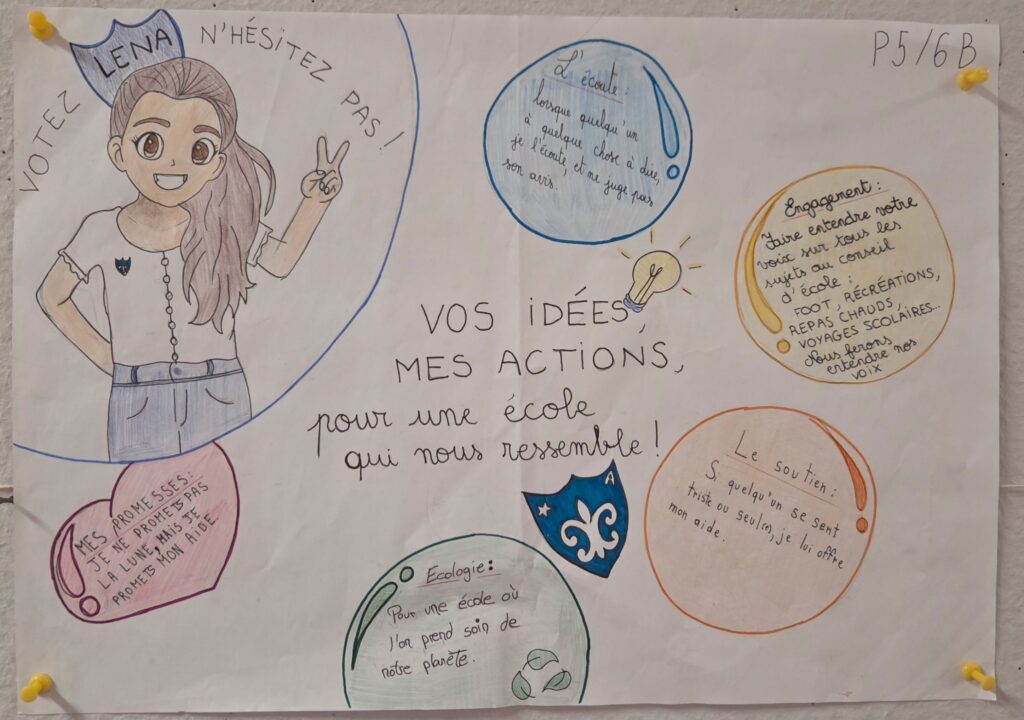 VOTEZ
LENA
N'HÉSITEZ
PAS !
P5/6B
L'écoute :
lorsque quelqu'un
à quelque chose à dire,
je l'écoute, et ne juge pas
son avis.
Engagement :
Faire entendre votre
voix sur tous les
sujets au conseil
d'école :
FOOT, RÉCRÉATIONS,
REPAS CHAUDS,
VOYAGES SCOLAIRES...
Nous ferons
entendre nos
voix
VOS IDÉES,
MES ACTIONS,
pour une école
qui nous ressemble !
Le soutien :
Si quelqu'un se sent
triste ou seul(e), je lui offre
mon aide.
A
MES PROMESSES :
JE NE PROMETS PAS
LA LUNE, MAIS JE
PROMETS MON AIDE
Ecologie :
Pour une école où
l'on prend soin de
notre planète.